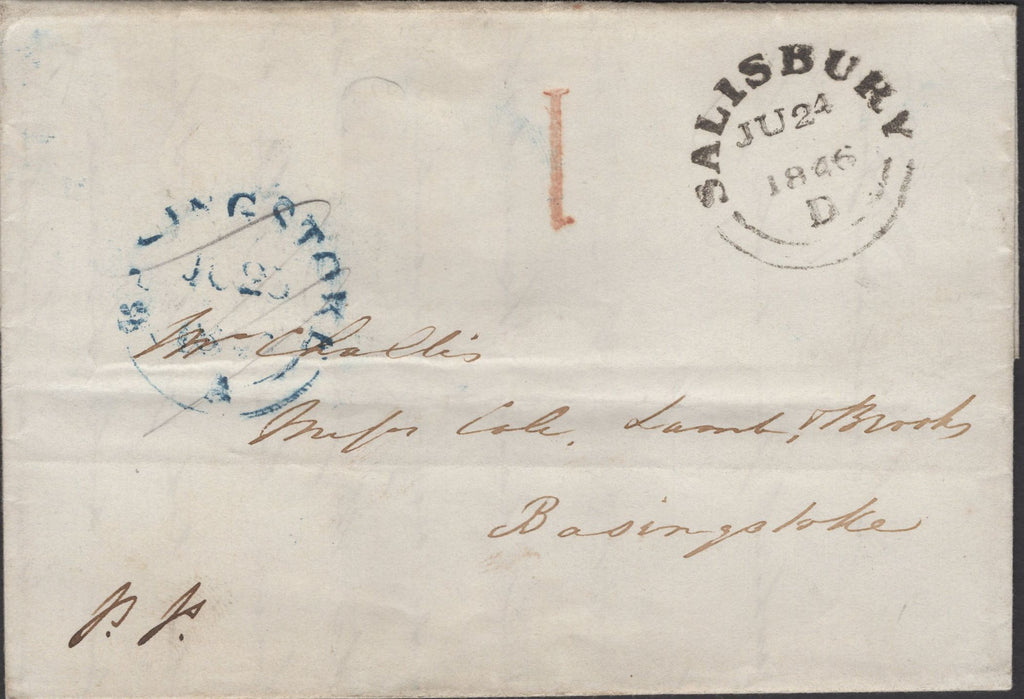 SALISBURY
JU 24
1846
D
1
BASINGSTOKE
JU 25
A
Mr Challis
Messrs Cole, Lamb, & Brooks
Basingstoke
p. p.